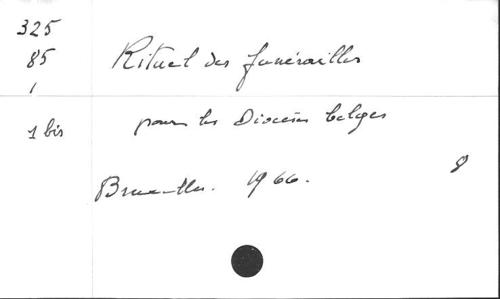 325
85 Rituel des funérailles
1
1 bis pour les Diocèses belges
Bruxelles. 1966. 8